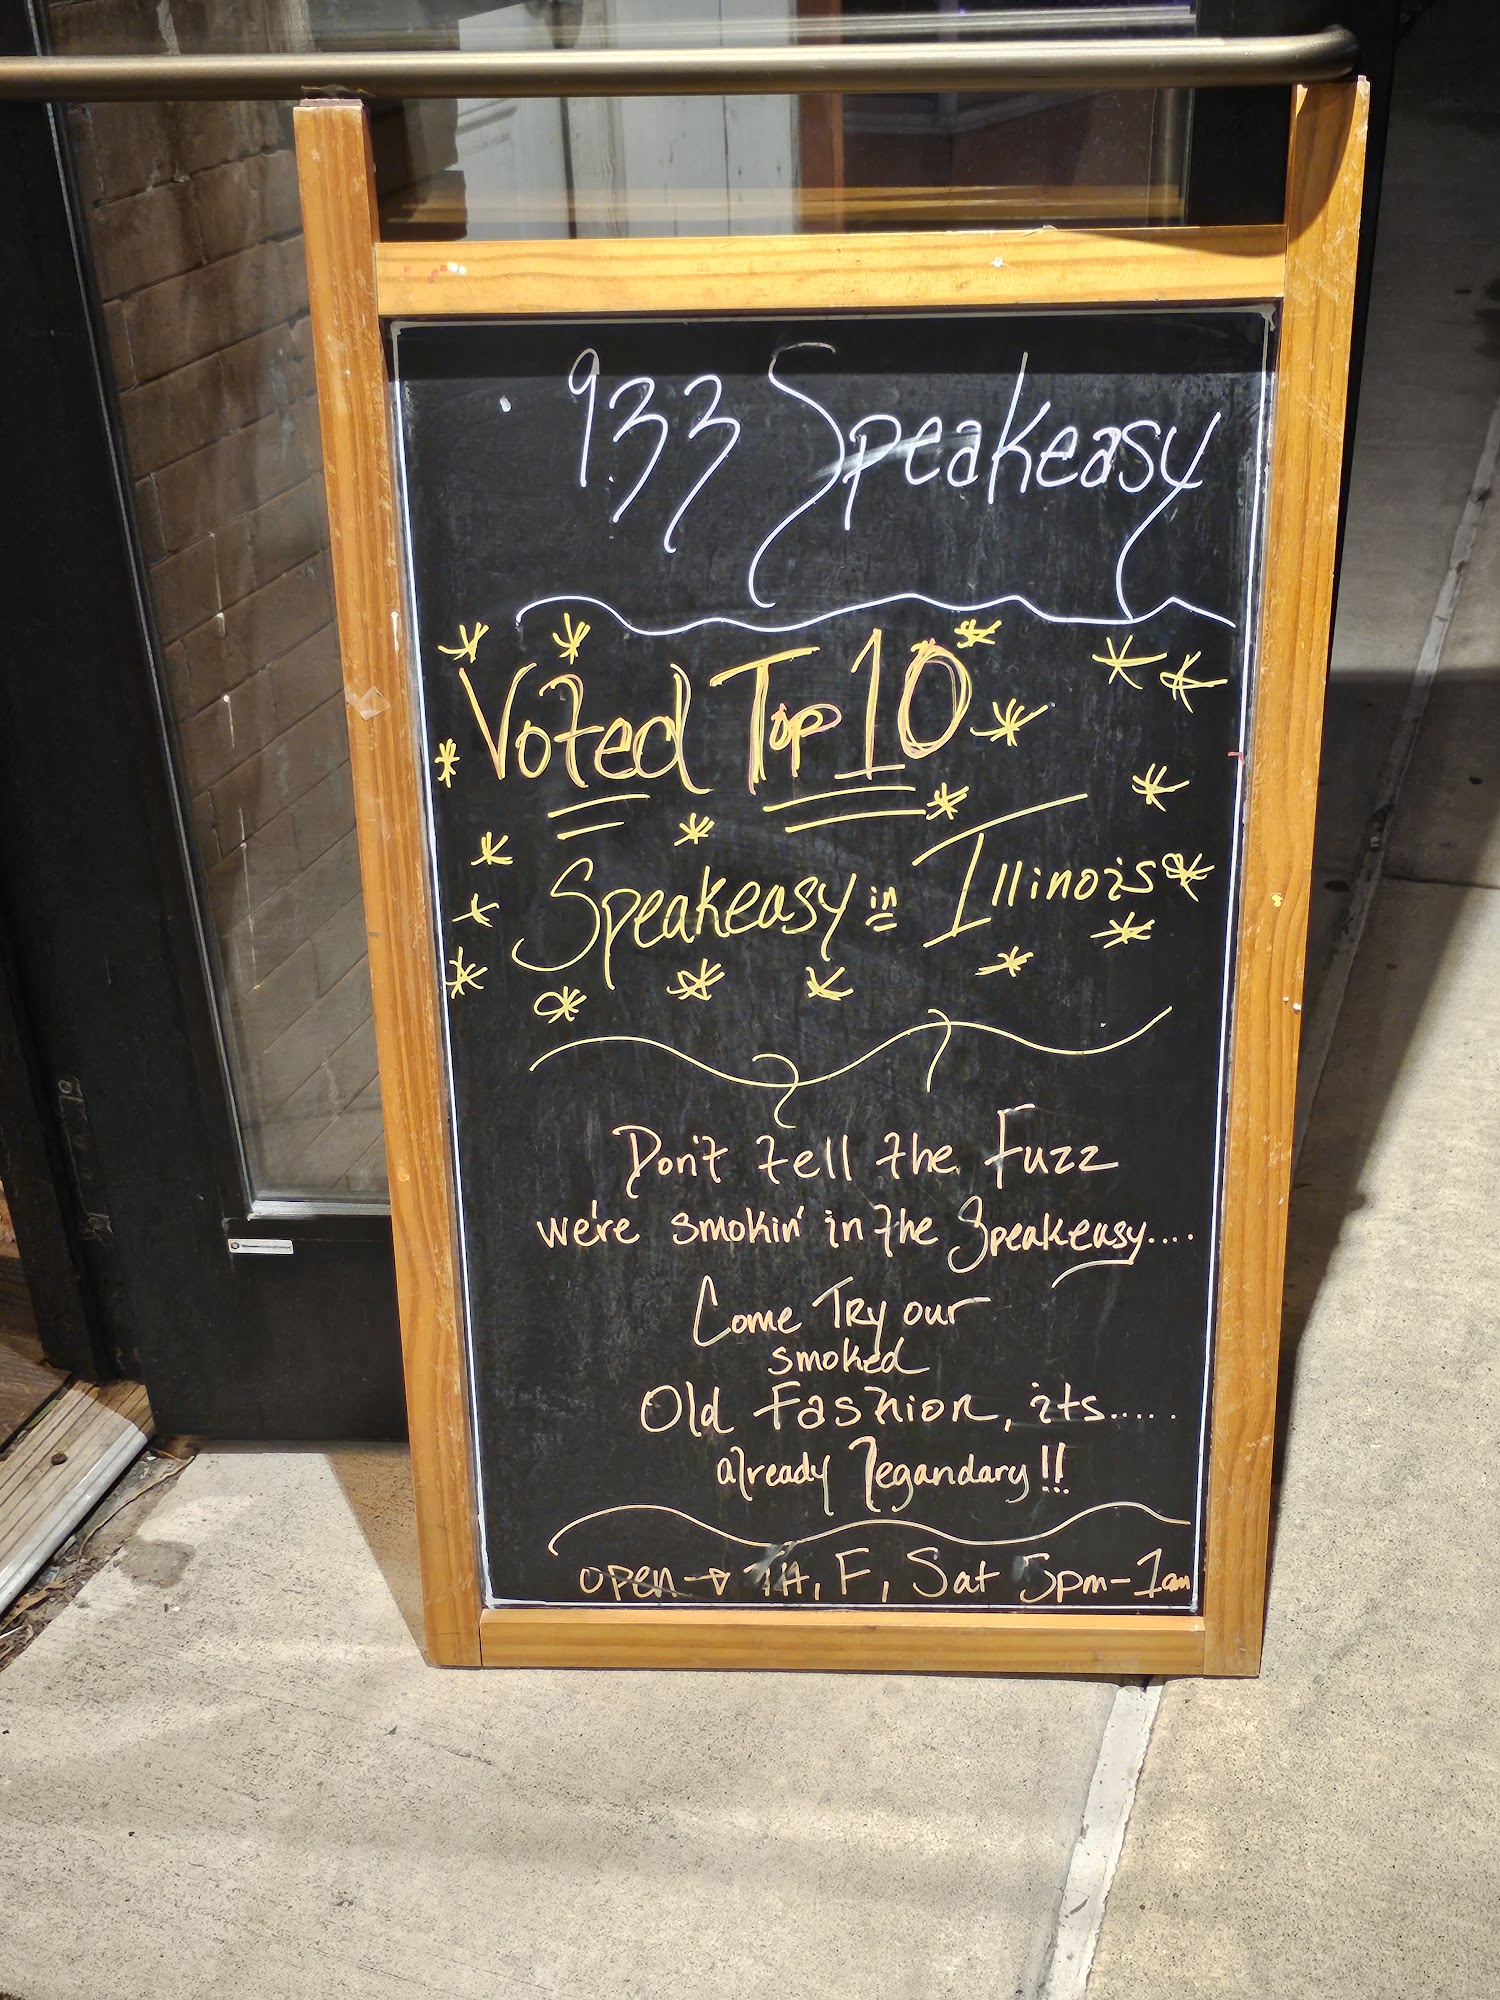 933 Speakeasy
Voted Top 10
Speakeasy in Illinois
Don't tell the Fuzz
we're smokin' in the Speakeasy....
Come Try our
smoked
Old Fashion, its.....
already legandary!!
open → TH, F, Sat 5pm-1am